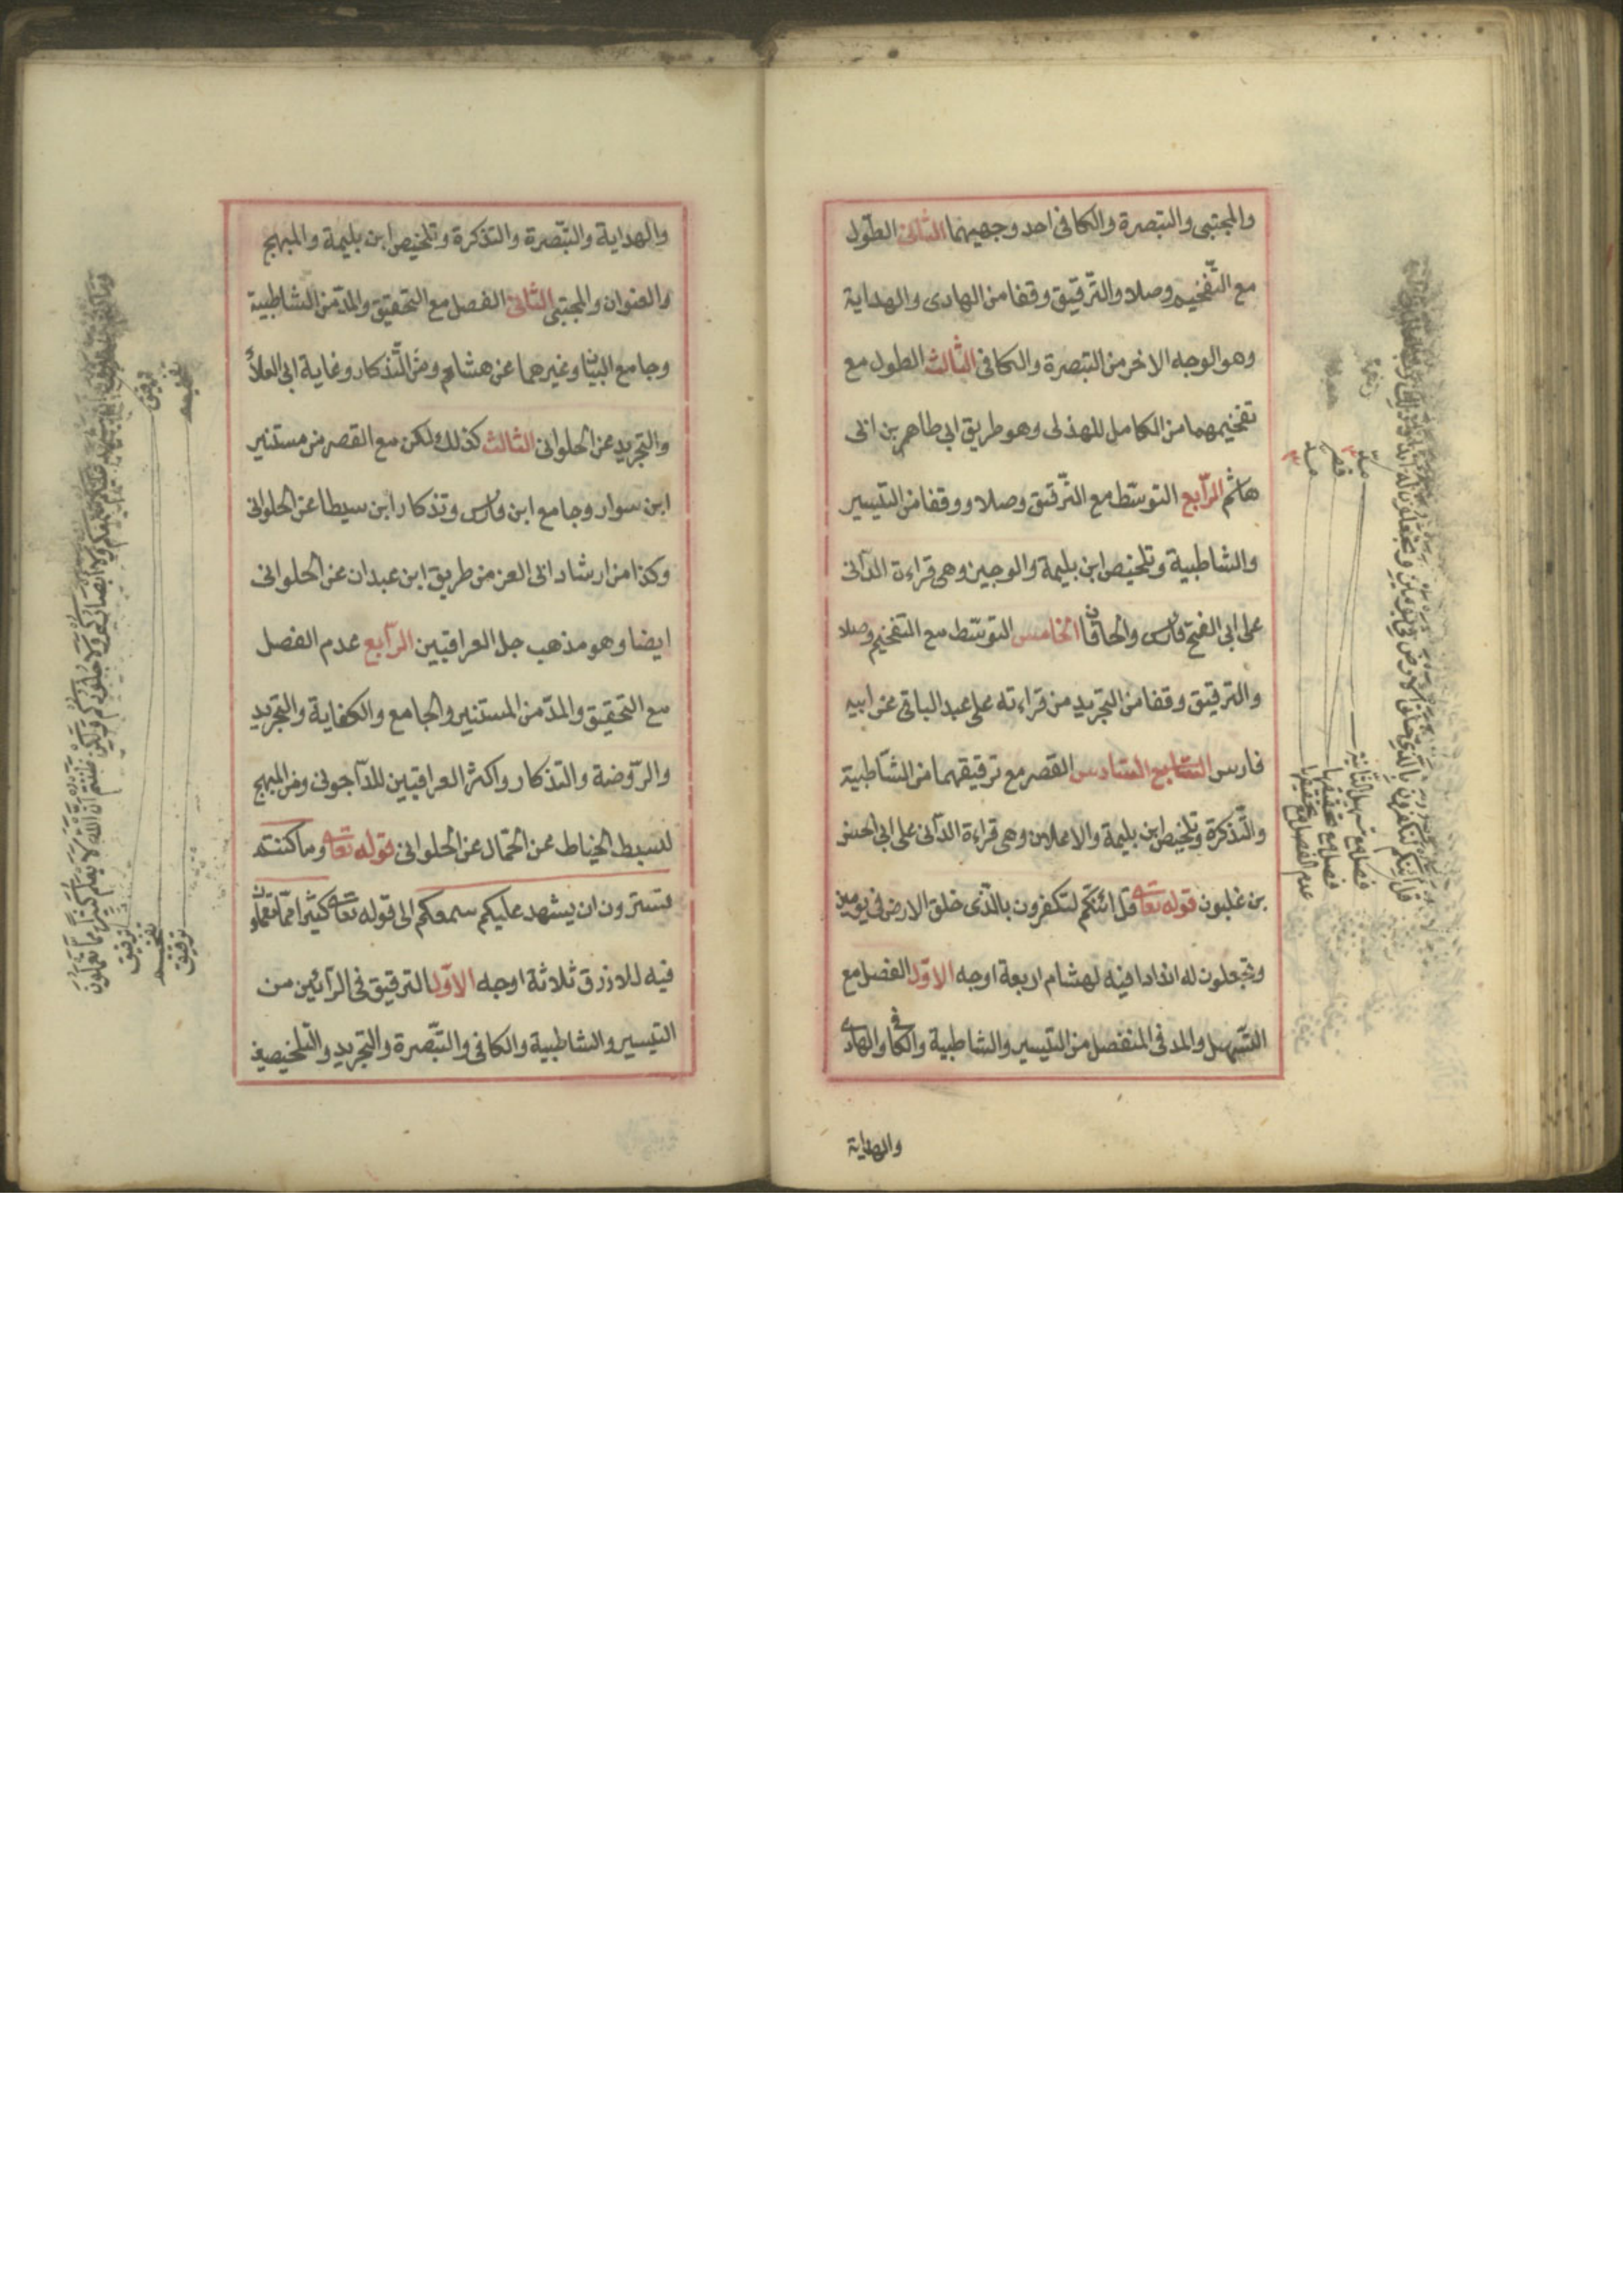 والمجتبى والتبصرة والكافى احد وجهيهما الثانى الطول
مع التفخيم وصلا والترقيق وقفا من الهادى والهداية
وهو الوجه الاخر من التبصرة والكافى الثالث الطول مع
تفخيمهما من الكامل للهذلى وهو طريق ابى طاهر بن ابى
هاشم الرابع التوسط مع الترقيق وصلا ووقفا من التيسير
والشاطبية وتلخيص ابن بليمة والوجيز وهى قراءة الدانى
على ابى الفتح فارس والخاقان الخامس التوسط مع التفخيم وصلا
والترقيق وقفا من التجريد من قراءته على عبد الباقى عن ابيه
فارس السابع السادس القصر مع ترقيقهما من الشاطبية
والتذكرة وتلخيص ابن بليمة والاعلان وهى قراءة الدانى على ابى الحسن
بن غلبون قوله تعالى قل ائنكم لتكفرون بالذى خلق الارض فى يومين
وتجعلون له اندادا فيه لهشام اربعة اوجه الاول الفصل مع
التسهيل والمد فى المنفصل من التيسير والشاطبية والكافى والهادى
والهداية
قل أئنكم لتكفرون بالذي خلق الأرض في يومين وتجعلون له أندادا
مد
قصر
مد
فصل مع تسهيل الثانية
فصل مع تحقيقها
عدم الفصل مع تحقيقها
والهداية والتبصرة والتذكرة وتلخيص ابن بليمة والمبهج
والعنوان والمجتبى الثانى الفصل مع التحقيق والمد من الشاطبية
وجامع البيان وغيرهما عن هشام ومن التذكار وغاية ابى العلاء
والتجريد عن الحلوانى الثالث كذلك لكن مع القصر من مستنير
ابن سوار وجامع ابن فارس وتذكار ابن سيطا عن الحلوانى
وكذا من ارشاد ابى العز من طريق ابن عبدان عن الحلوانى
ايضا وهو مذهب جل العراقيين الرابع عدم الفصل
مع التحقيق والمد من المستنير والجامع والكفاية والتجريد
والروضة والتذكار واكثر العراقيين للداجونى ومن المبهج
لسبط الخياط عن الجمال عن الحلوانى قوله تعالى وما كنتم
تستترون ان يشهد عليكم سمعكم الى قوله تعالى كثيرا مما تعملون
فيه للازرق ثلاثة اوجه الاول الترقيق فى الرائين من
التيسير والشاطبية والكافى والتبصرة والتجريد والتلخيصين
سمعكم ولا أبصاركم ولا جلودكم ولكن ظننتم أن الله لا يعلم كثيرا مما تعملون
ترقيق
تفخيم
ترقيق
تفخيم
ترقيق